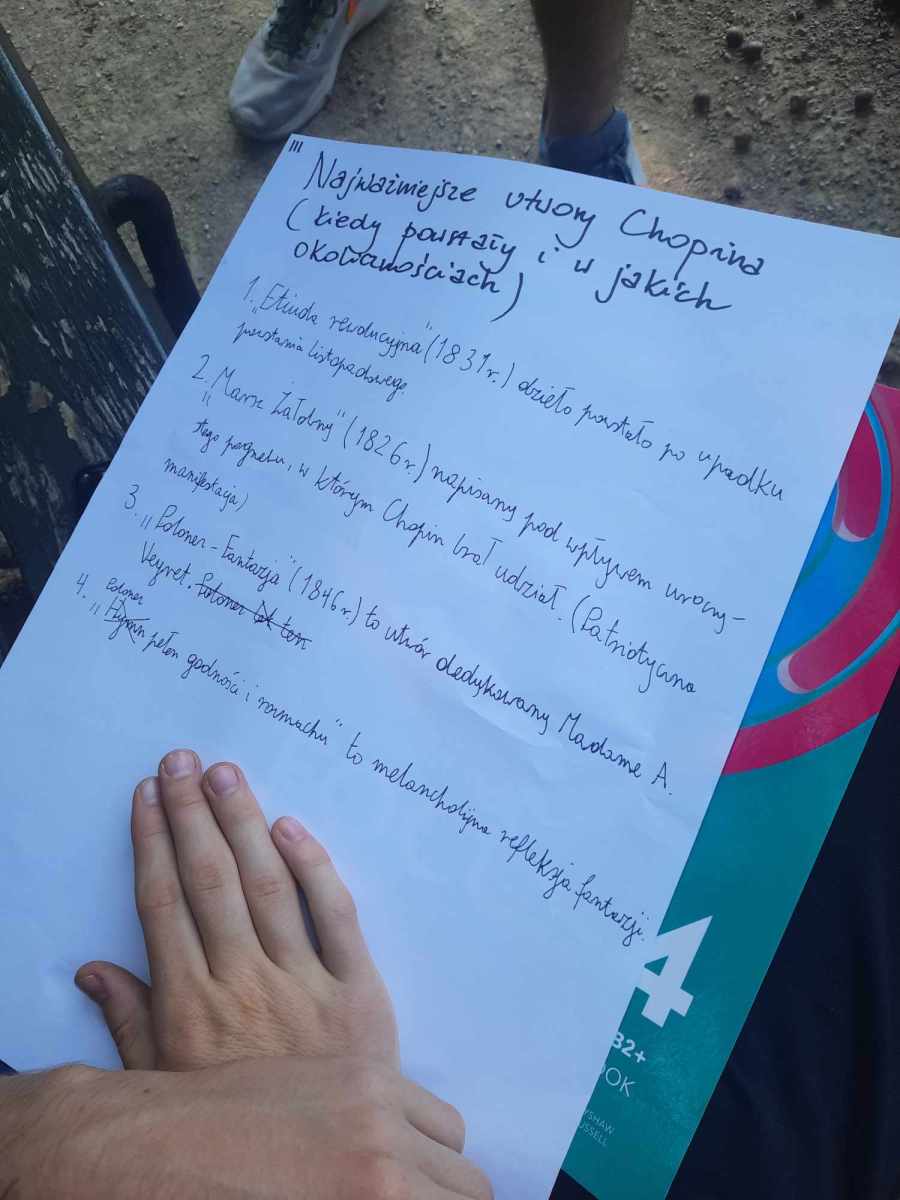 III
Najważniejsze utwory Chopina
(kiedy powstały i w jakich
okolicznościach)
1. „Etiuda rewolucyjna" (1831 r.) dzieło powstało po upadku
powstania listopadowego.
2. „Marsz Żałobny" (1826 r.) napisany pod wpływem uroczy-
stego pogrzebu, w którym Chopin brał udział. (Patriotyczna
manifestacja)
3. „Polonez-Fantazja" (1846 r.) to utwór dedykowany Madame A.
Veyret. Polonez ten
polonez
4. „Hymn pełen godności i rozmachu" to melancholijna refleksja fantazji.
4
B2+
OOK
SHAW
USSELL